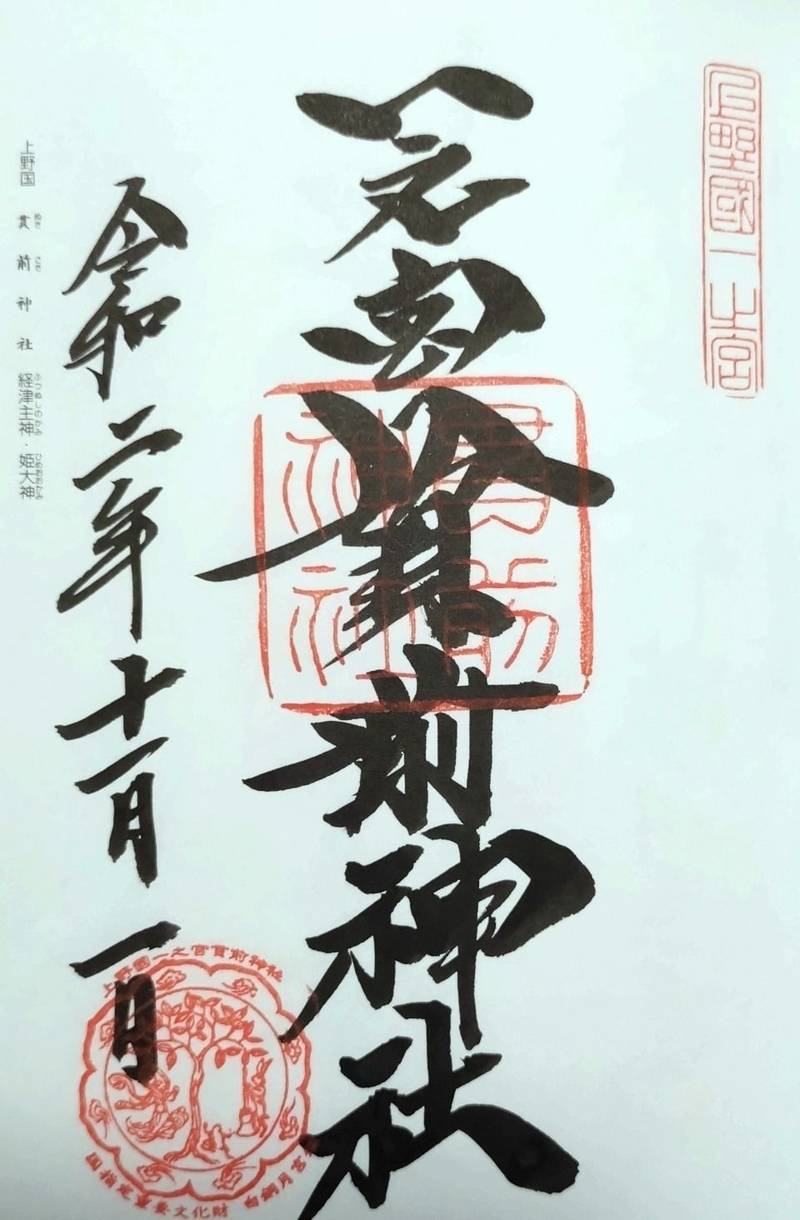 上野國一之宮
一之宮貫前神社
貫前
神社
令和二年十一月一日
上野国 貫前神社 経津主神・姫大神
上野國一之宮貫前神社
国指定重要文化財 白銅月宮